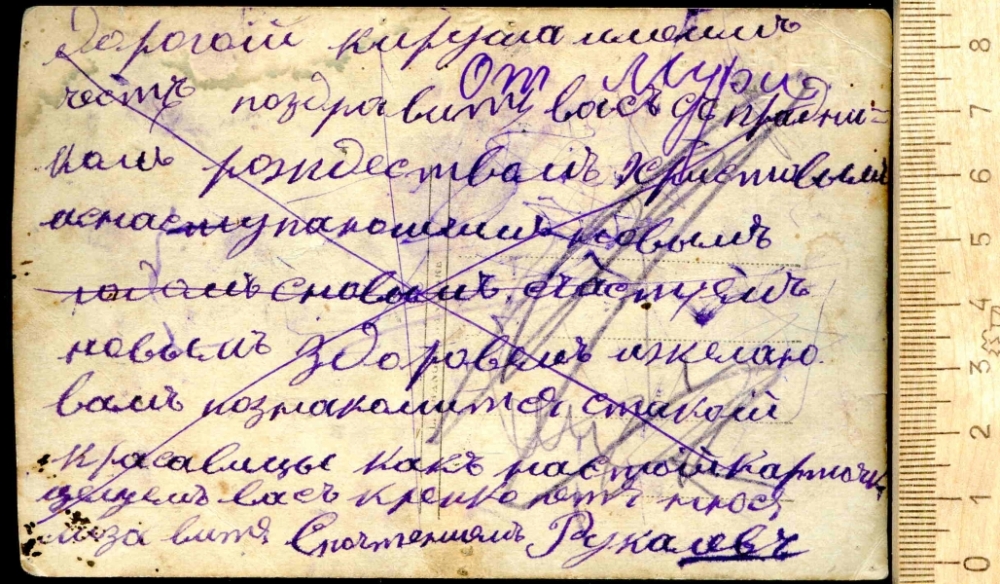 Дорогой кируша имеимъ
От Мури
честь поздравить васъ съ праздни-
комъ рождествомъ христовымъ
иснаступающимъ новымъ
годомъ сновымъ счастьемъ
новымъ здоровемъ ижелаю
вамъ познакомится стакой
красавицы какъ настойкарточки
целуемъ васъ крепко петъ
Спочтениемъ Рукавовъ
8
7
6
5
4
3
2
1
0